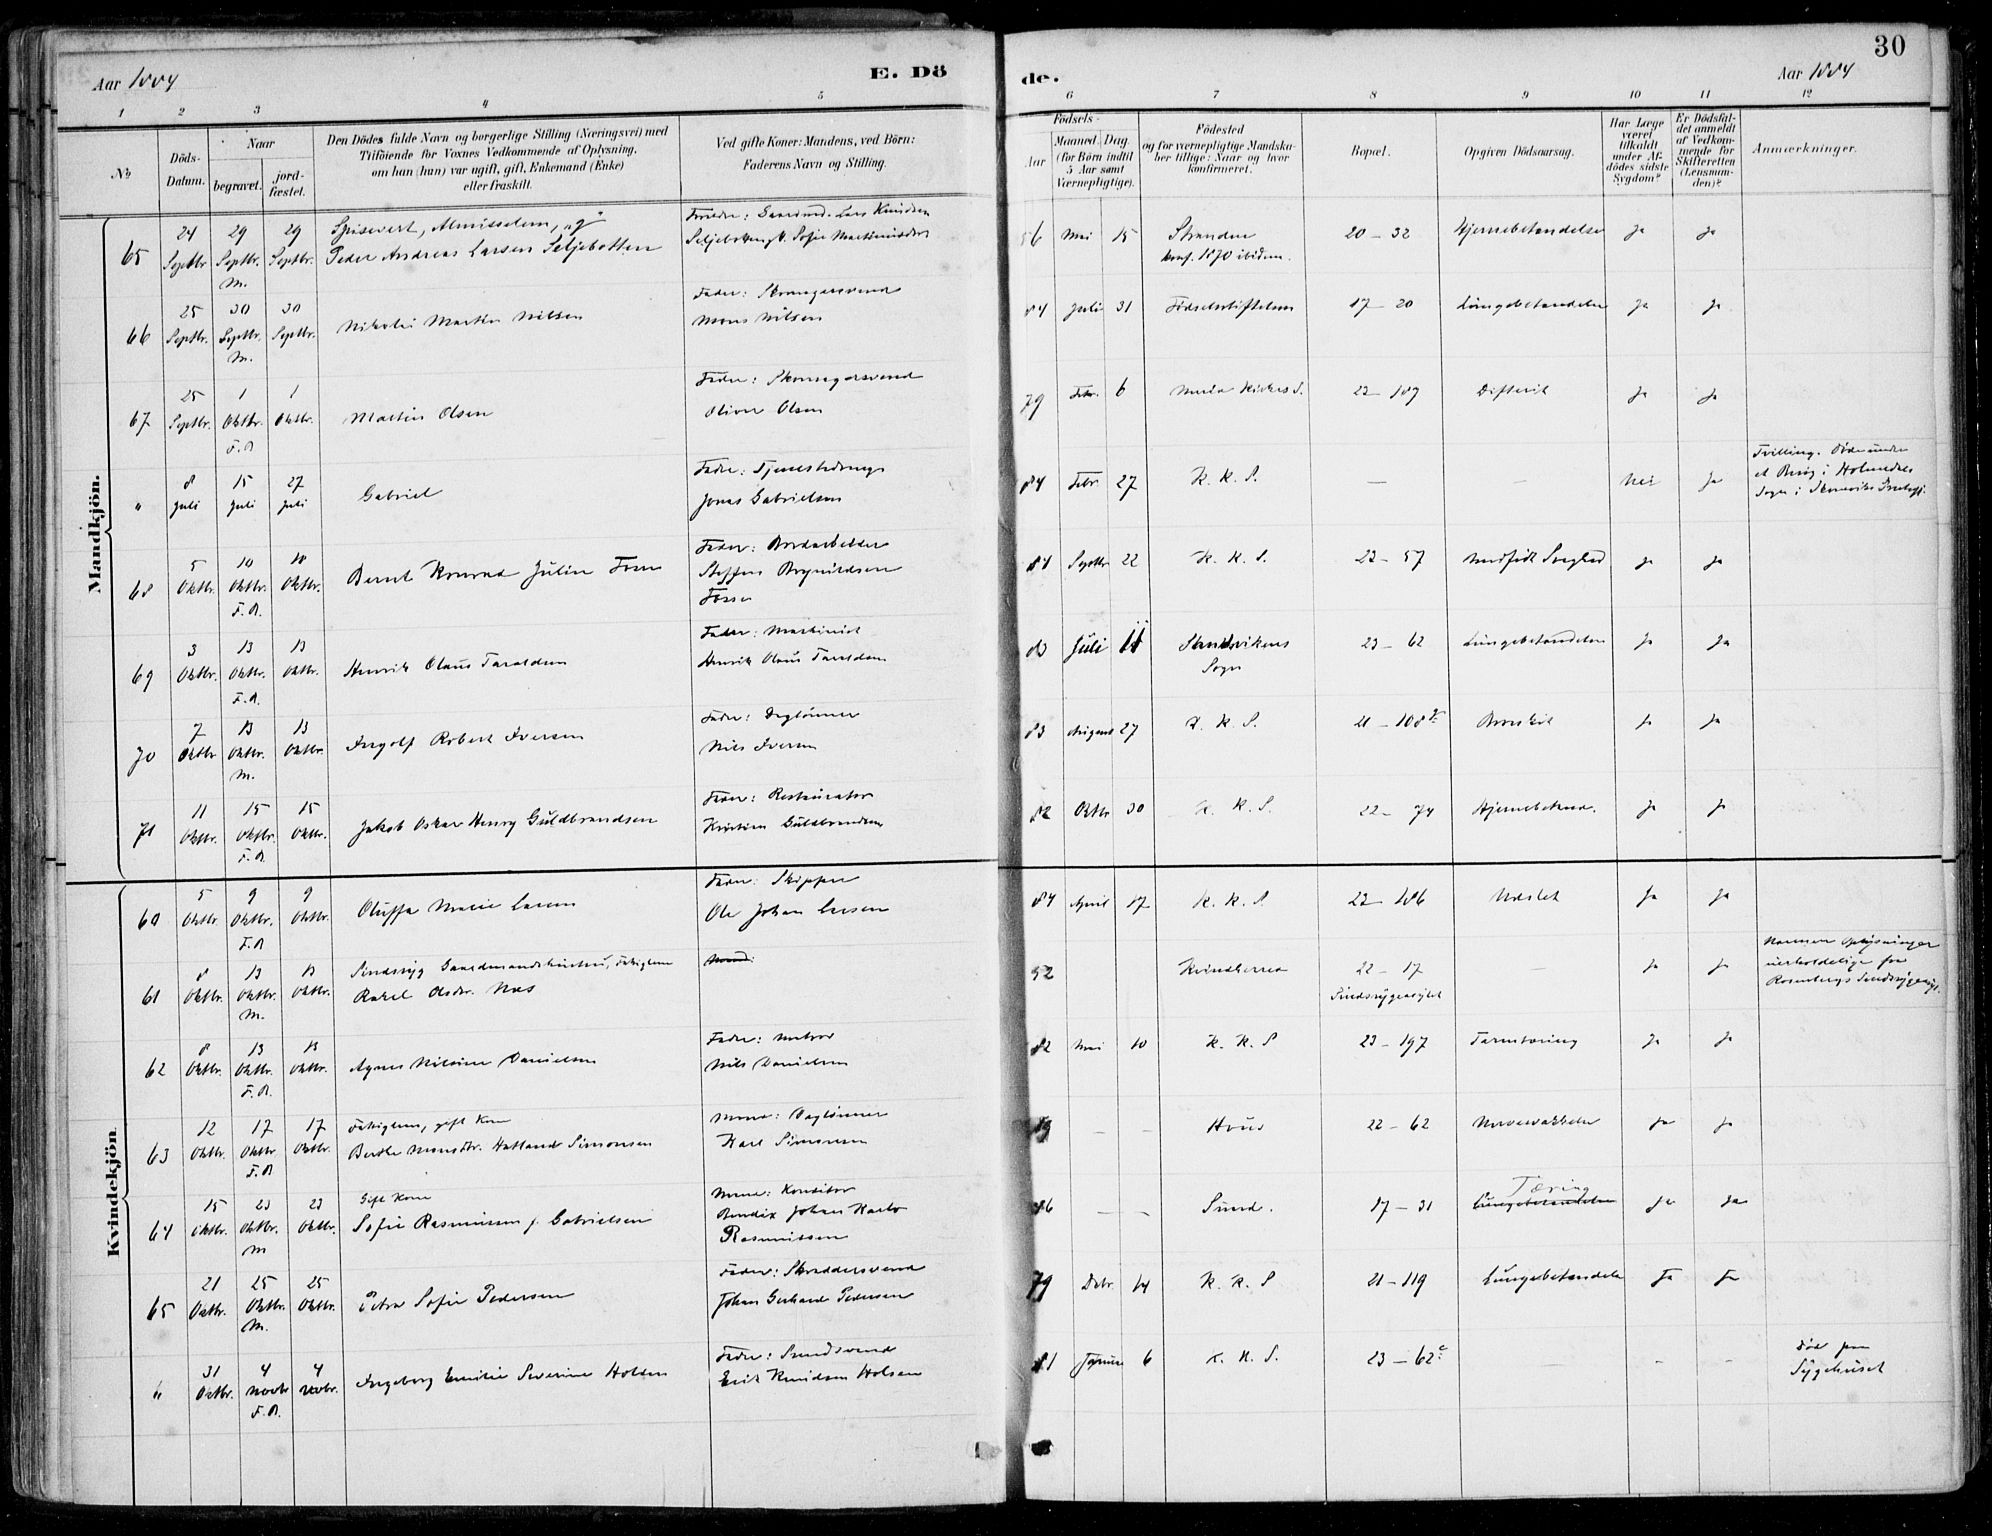 Aar 1884
E. Dö
de.
Aar 1884
30
1 2 3 4 5 6 7 8 9 10 11 12
No
Döds-Datum.
Naar
begravet.
jord-fæstet.
Den Dödes fulde Navn og borgerlige Stilling (Næringsvei) med
Tilföiende for Voxnes Vedkommende af Oplysning,
om han (hun) var ugift, gift, Enkemand (Enke)
eller fraskilt.
Ved gifte Koner: Mandens, ved Börn:
Faderens Navn og Stilling.
Födsels-
Aar
Maaned. Dag.
(for Börn indtil
5 Aar samt
Værnepligtige).
Födested
og for værnepligtige Mandska-
ber tillige: Naar og hvor
konfirmeret.
Bopæl.
Opgiven Dödsaarsag.
Har Læge
været
tilkaldt
under Af-
dödes sidste
Sygdom?
Er Dödsfal-
det anmeldt
af Vedkom-
mende for
Skifteretten
(Lensman-
den)?
Anmærkninger.
Mandkjön.
65 24 Septbr 29 Septbr. M. 29 Septbr.
Spisevert, Almisselem, "g"
Peder Andreas Larsen Seljebotten
Forældre: Gaardmd. Lars Knudsen
Seljebotten, Sofie Martinusdtr
56 Mai 15 Stranden
konf. 1870 ibidem.
20 – 32 Hjernebetændelse ja ja
66 25 Septbr. 30 Septbr. M. 30 Septbr.
Nikolai Martin Nilsen
Fader: Skomagersvend
Mons Nilsen
84 Juli 31 Fødselsstiftelsen 17 – 20 Lungebetændelse Ja Ja
67 25 Septbr. 1 Oktbr. F.A 1 Oktbr.
Martin Olsen
Fader: Skomagersvend
Oliver Olsen
79 Febr. 6 Maria Kirkes S. 22 – 109 Difterit Ja Ja
" 8 Juli 15 Juli 27 Juli
Gabriel
Fader: Tjenestedreng
Jonas Gabrielsen
84 Febr 27 K. K. S. — — Nei Ja
Tvilling. Døde under
et Besøg i Holmedals
Sogn i Skoneviks Præstegj.
68 5 Oktbr. 10 Oktbr. F.A. 10 Oktbr.
Bernt Konrad Julin Fosse
Fader: Bordarbeider
Steffen Brynildsen
Fosse
84 Septbr 22 K. K. S. 22 – 57 Medfødt Svaghed ja ja
69 3 Oktbr. 13 Oktbr. F.A. 13 Oktbr.
Henrik Olaus Taraldsen
Fader: Maskinist
Henrik Olaus Taraldsen
83 Juli 11 Sandvikens
Sogn
23 – 62 Lungebetændelse Ja Ja
70 7 Oktbr 13 Oktbr. M. 13 Oktbr.
Ingolf Robert Iversen
Fader: Daglønner
Nils Iversen
83 August 27 K. K. S. 21 – 108 Bronkit Ja Ja
71 11 Oktbr. 15 Oktbr. F.A 15 Oktbr.
Jakob Oskar Henry Guldbrandsen
Fader: Restauratør
Kristian Guldbrandsen
82 Oktbr 30 K. K. S. 22 – 74 Hjernebetænd. Ja Ja
Kvindekjön
60 5 Oktbr. 9 Oktbr. F.A 9 Oktbr.
Oluffa Marie Larsen
Fader: Skipper
Ole Johan Larsen
84 April 17 K. K. S. 22 – 186 Udslet Ja Ja
61 8 Oktbr. 13 Oktbr. M. 13 Oktbr.
Sindssyg Gaardmandshustru, Fattiglem
Rakel Olsdtr. Næs
Mand:
52 Kvindherred 22 – 17
Sindssygeasylet
— Ja Ja
Nærmere Oplysninger
uerholdelige fra
Rosenbergs Sindssygeasyl.
62 8 Oktbr. 13 Oktbr. F.A. 13 Oktbr.
Agnes Nilsine Danielsen
Fader: Matros
Nils Danielsen
82 Mai 10 K. K. S 23 – 197 Tarmtæring Ja Ja
63 12 Oktbr. 17 Oktbr. F.A 17 Oktbr.
Fattiglem, gift Kone
Berthe Monsdtr. Hatland Simonsen
Mand: Daglønner
Karl Simonsen
19 — — Huus 22 – 62 Nervesvækkelse Ja Ja
64 15 Oktbr. 23 Oktbr. M 23 Oktbr.
Gift Kone
Sofie Rasmussen f. Gabrielsen
Mand: Konditor
Bendix Johan Karlo
Rasmussen
— — Sund. 17 – 31 Tæring
Lungebetændelse
Ja Ja
65 21 Oktbr. 25 Oktbr. M. 25 Oktbr.
Petra Sofie Pedersen
Fader: Skræddersvend
Johan Gerhard Pedersen
79 Debr. 14 K. K. S 21 – 119 Lungebetændelse Ja Ja
" 31 Oktbr. 4 Novbr F.A. 4 Novbr.
Ingeborg Emilie Severine Holsen
Fader: Smedsvend
Erik Knudsen Holsen
81 Januar 6 K. K. S. 23 – 62 – –
Død paa
Sygehuset